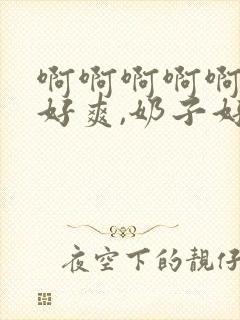 啊啊啊啊啊
好爽,奶子好
夜空下的靓仔